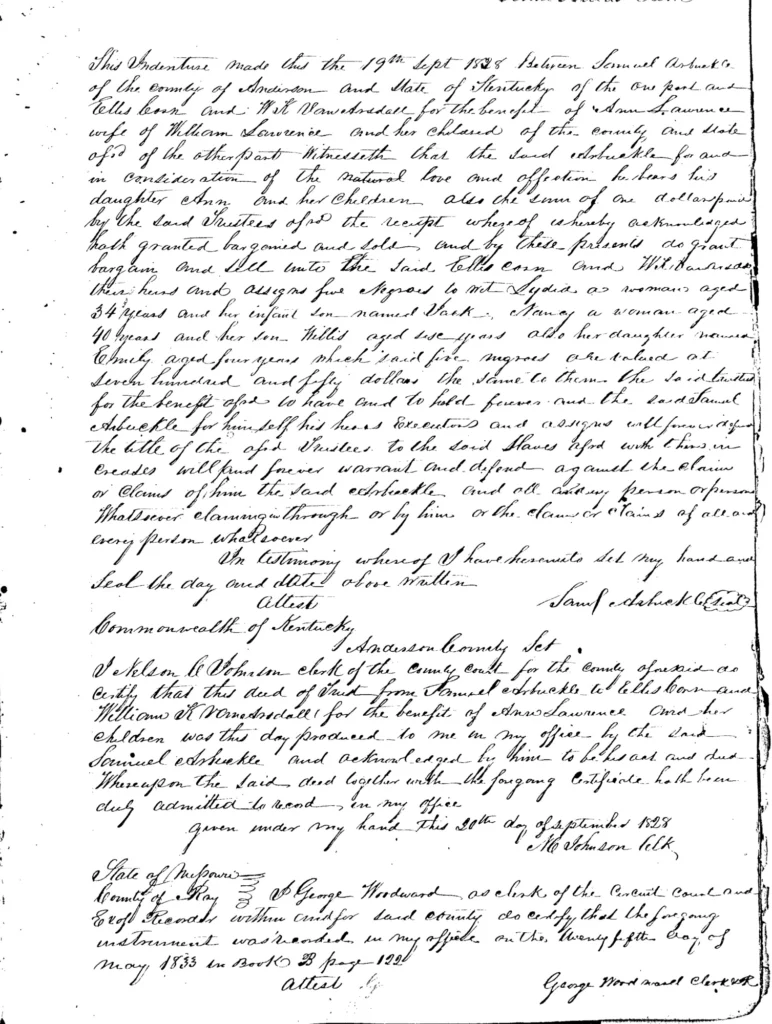 This Indenture made this the 19th Sept 1828 Between Samuel Arbuckle
of the county of Anderson and State of Kentucky of the one part and
Ellis Corn and W. K Vanarsdall for the benefit of Ann Lawrence
wife of William Lawrence and her children of the county and state
afsd of the other part Witnesseth that the said Arbuckle for and
in consideration of the natural love and affection he bears his
daughter Ann and her Children also the sum of one dollar paid
by the said Trustees afsd the receipt whereof is hereby acknowledged
hath granted bargained and sold, and by these presents do grant
bargain and sell unto the said Ellis Corn and W. K. Vanarsdall
their heirs and assigns five Negroes to wit Lydia a woman aged
34 years and her infant son named Nancy a woman aged
40 years and her son Willis aged six years also her daughter named
Emily aged four years which said five negroes are valued at
Seven hundred and fifty dollars the same to them the said trustees
for the benefit afsd to have and to hold forever and the said Samuel
Arbuckle for himself his heirs Executors and assigns will forever defend
the title of the afsd Trustees to the said Slaves afsd with their in
creases will and forever warrant and defend against the claim
or claims of him the said Arbuckle and all any person or persons
Whatsoever claiming through or by him or the claim or claims of all and
every person whatsoever
In testimony whereof I have hereunto set my hand and
Seal the day and date above written
Attest Saml Arbuckle (Seal)
Commonwealth of Kentucky
Anderson County Sct
I Nelson C Johnson clerk of the county court for the county aforesaid do
certify that this deed of Trust from Samuel Arbuckle to Ellis Corn and
William K Vanarsdall for the benefit of Ann Lawrence and her
children was this day produced to me in my office by the said
Samuel Arbuckle and acknowledged by him to be his act and deed
Whereupon the said deed together with the foregoing Certificate hath been
duly admitted to record in my office
given under my hand this 20th day of September 1828
NC Johnson Clk
State of Missouri
County of Ray I George Woodward as clerk of the Circuit Court and
Exof Recorder within and for said county do certify that the foregoing
instrument was recorded in my office on the twenty fifth day of
May 1833 in Book B page 122
Attest George Woodward Clerk & R